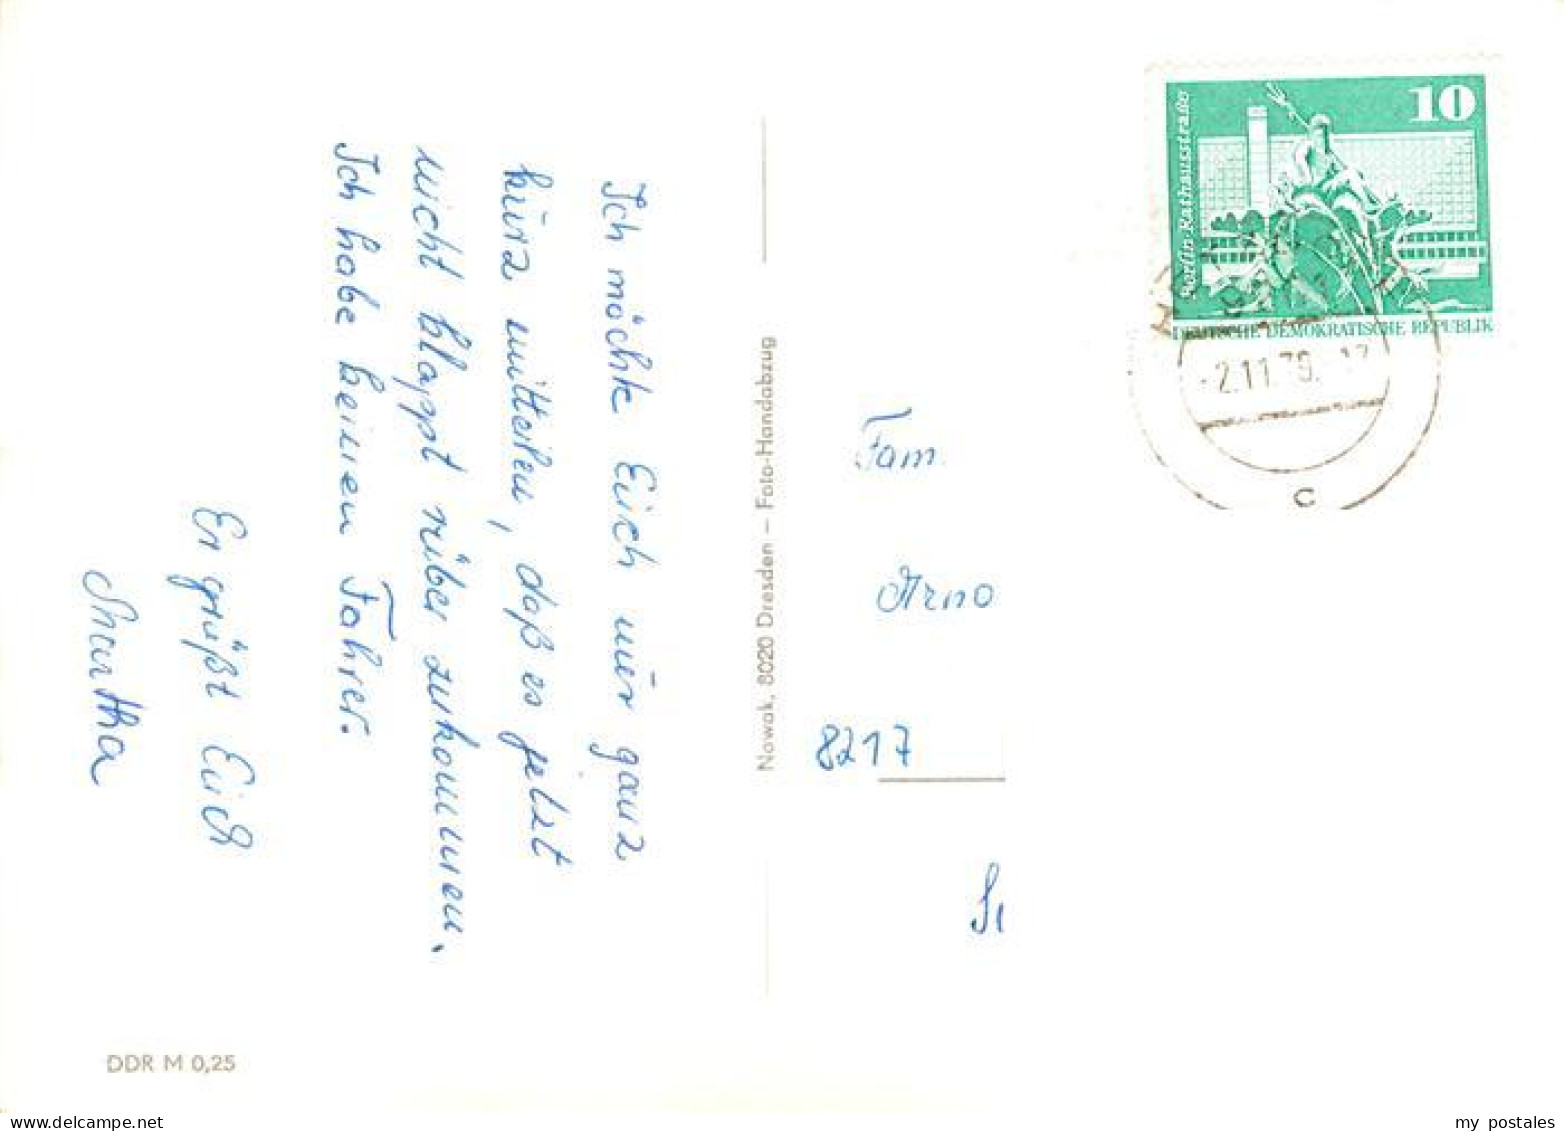 Ich möchte Euch nur ganz
kurz mitteilen, daß es jetzt
nicht klappt rüber zukommen.
Ich habe keinen Fahrer.
Er grüßt Euch
Nowak, 8020 Dresden — Foto-Handabzug
DDR M 0,25
10
Berlin · Rathausstraße
DEUTSCHE DEMOKRATISCHE REPUBLIK
-2.11.79.
C
Fam.
Arno
8217
my postales